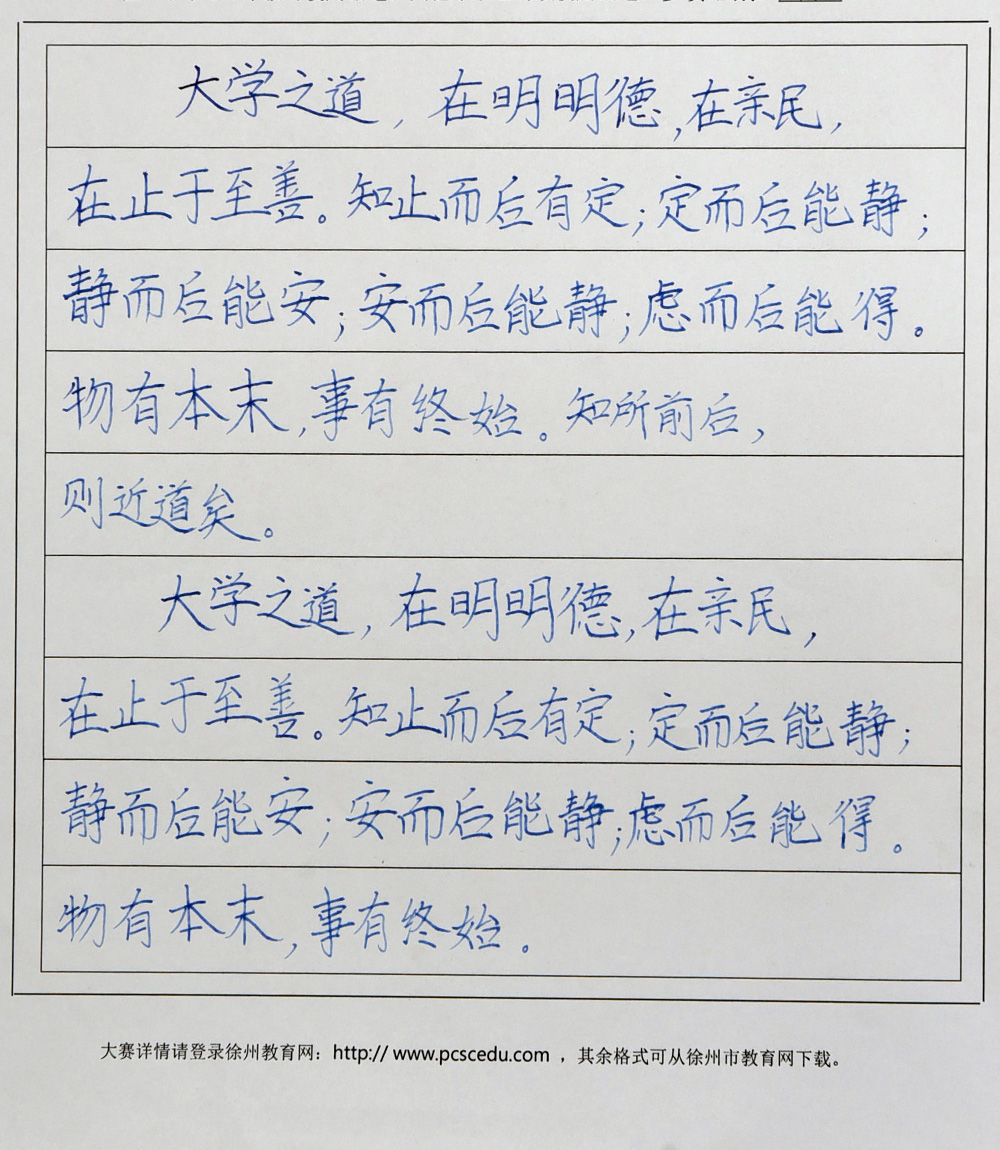 大学之道,在明明德,在亲民,
在止于至善。知止而后有定;定而后能静;
静而后能安;安而后能静;虑而后能得。
物有本末,事有终始。知所前后,
则近道矣。
大学之道,在明明德,在亲民,
在止于至善。知止而后有定;定而后能静;
静而后能安;安而后能静;虑而后能得。
物有本末,事有终始。
大赛详情请登录徐州教育网：http:// www.pcscedu.com ，其余格式可从徐州市教育网下载。